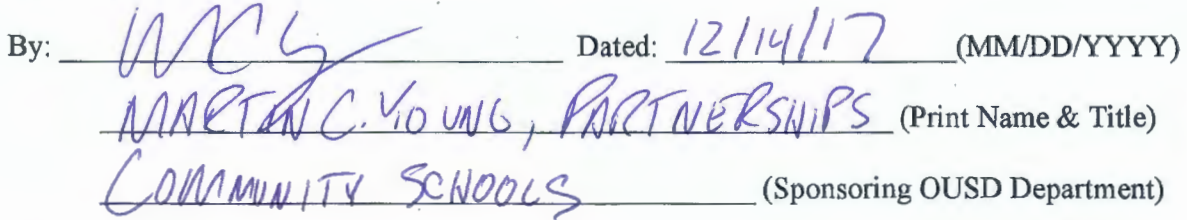 By: Dated: 12/14/17 (MM/DD/YYYY)
MARTIN C. YOUNG, PARTNERSHIPS (Print Name & Title)
COMMUNITY SCHOOLS (Sponsoring OUSD Department)